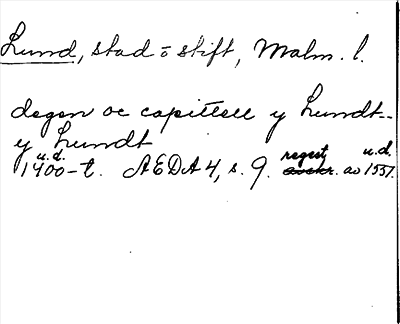 Lund, stad o stift, Malm. l.
degen oc capittell y Lundt--
y Lundt
u.d. regest u.d.
1400-t. AEDA 4, s. 9. av 1551.